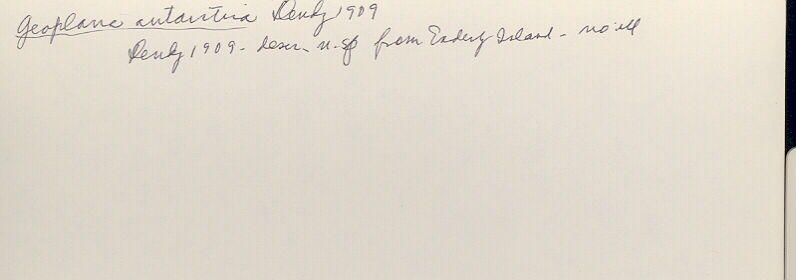 Geoplana antarctica Dendy 1909
Dendy 1909 - descr. n. sp from Enderby Island - no ill